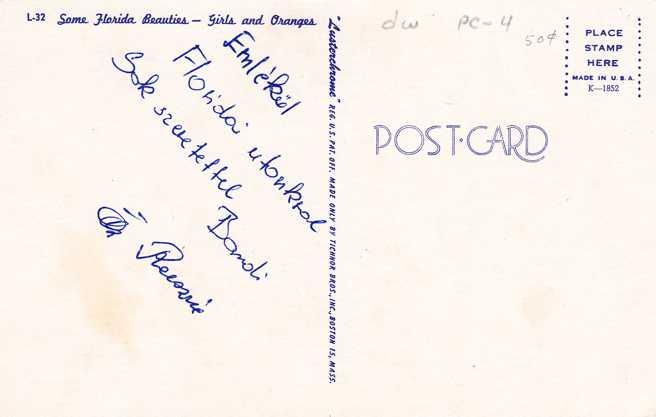 L-32 Some Florida Beauties — Girls and Oranges
Emlékül
Floridai utonkról
Sok szeretettel
Bandi
"Lusterchrome" REG. U.S. PAT. OFF. MADE ONLY BY TICHNOR BROS., INC., BOSTON 15, MASS.
dw PC-4
50¢
PLACE
STAMP
HERE
MADE IN U.S.A.
K—1852
POST·CARD